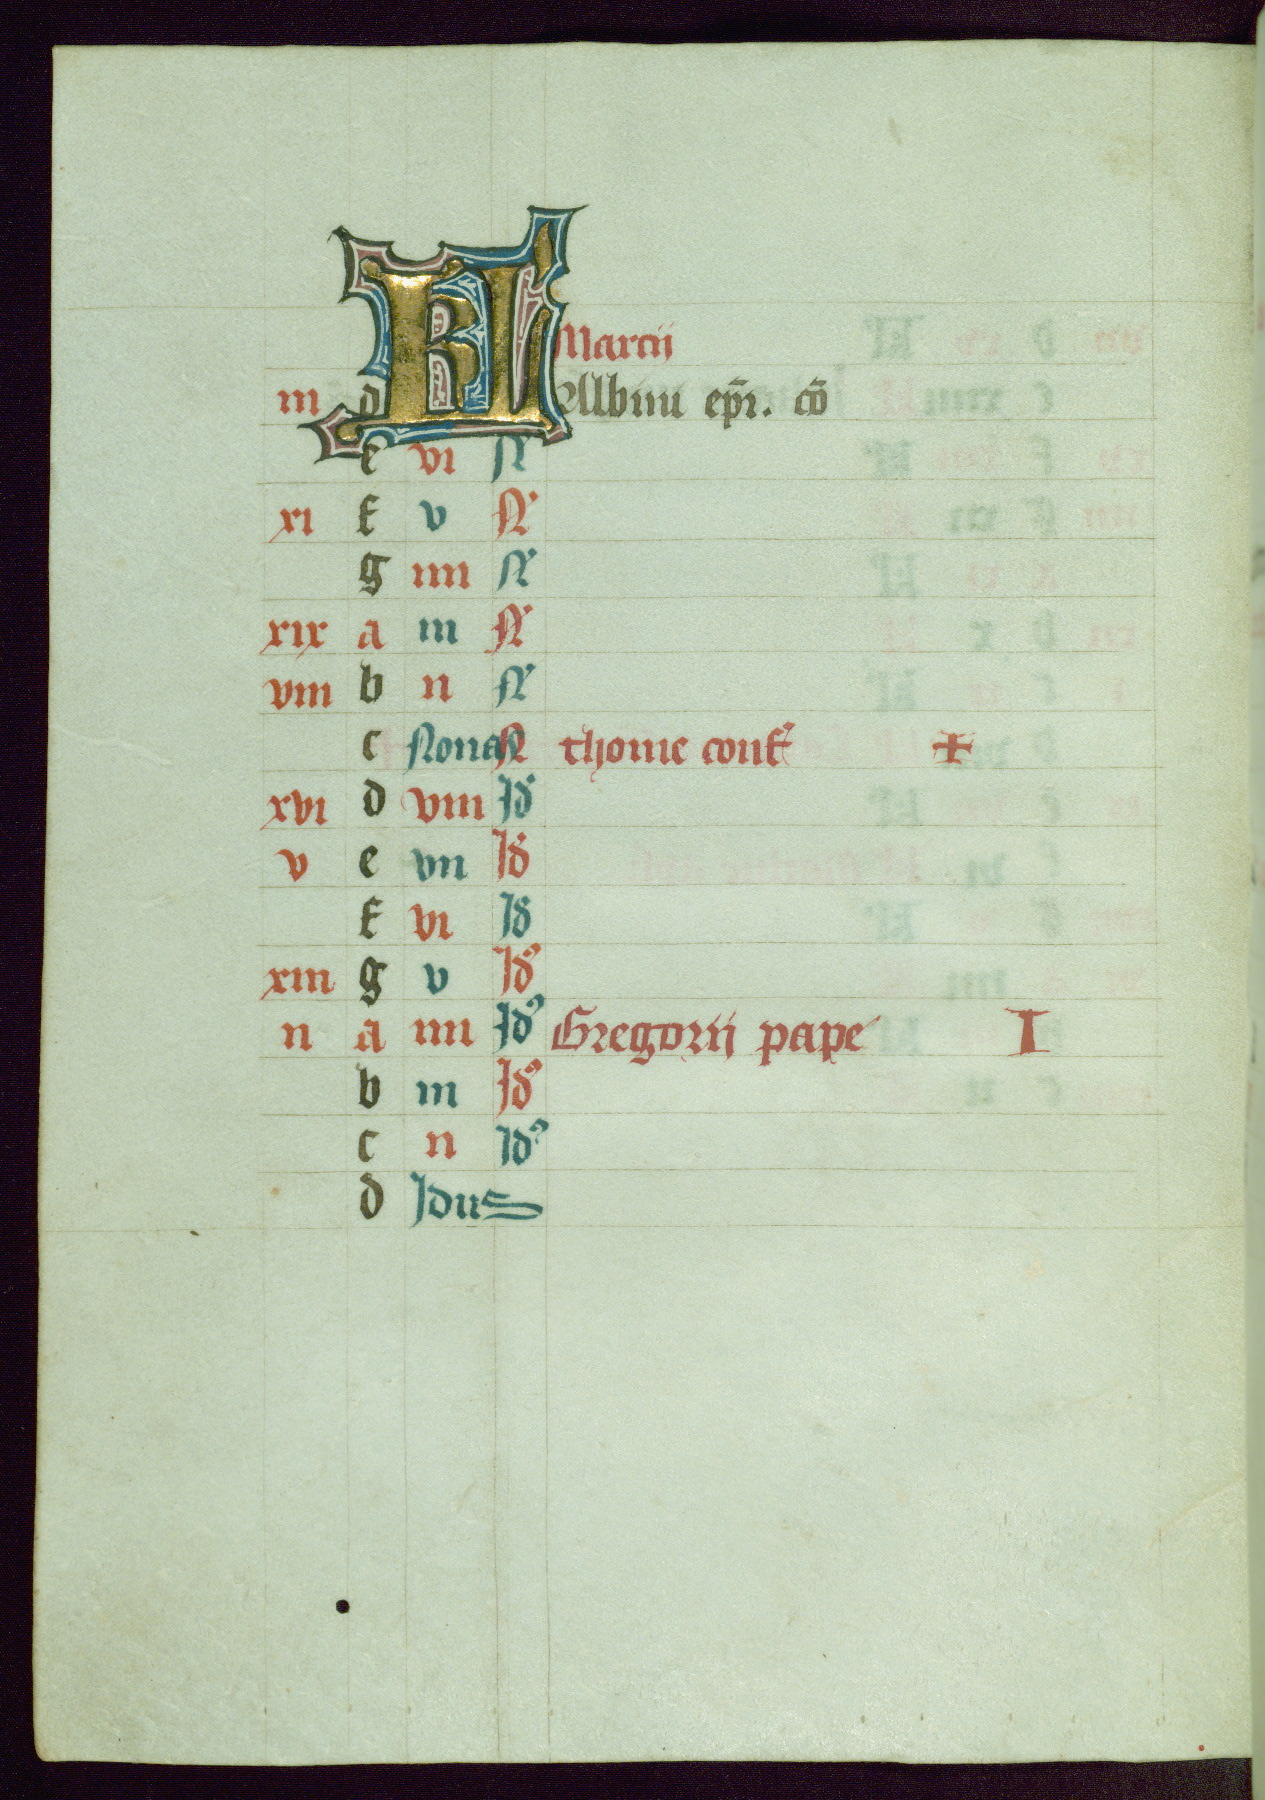 Kl Marcii
iii d Albini ep̄i. cō
e vi N'
xi f v N'
g iiii N'
xix a iii N'
viii b ii N'
c Nonas N thome conf' +
xvi d viii Id'
v e vii Id'
f vi Id'
xiii g v Id'
ii a iiii Id' Gregorii pape I
b iii Id'
c ii Id'
d Idus